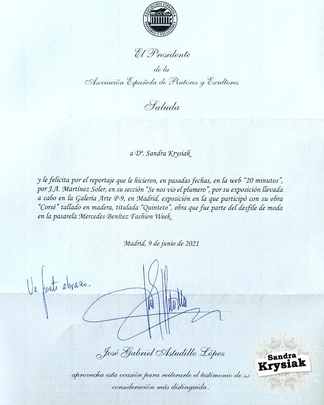 El Presidente
de la
Asociación Española de Pintores y Escultores
Saluda
a Dª. Sandra Krysiak
y le felicita por el reportaje que le hicieron, en pasadas fechas, en la web "20 minutos",
por J.A. Martínez Soler, en su sección "Se nos vio el plumero", por su exposición llevada
a cabo en la Galería Arte P-9, en Madrid, exposición en la que participó con su obra
"Corsé" tallado en madera, titulada "Quinteto", obra que fue parte del desfile de moda
en la pasarela Mercedes Benítez Fashion Week.
Madrid, 9 de junio de 2021
Un fuerte abrazo.
José Gabriel Astudillo López
aprovecha esta ocasión para reiterarle el testimonio de su
consideración más distinguida.
Sandra
Krysiak